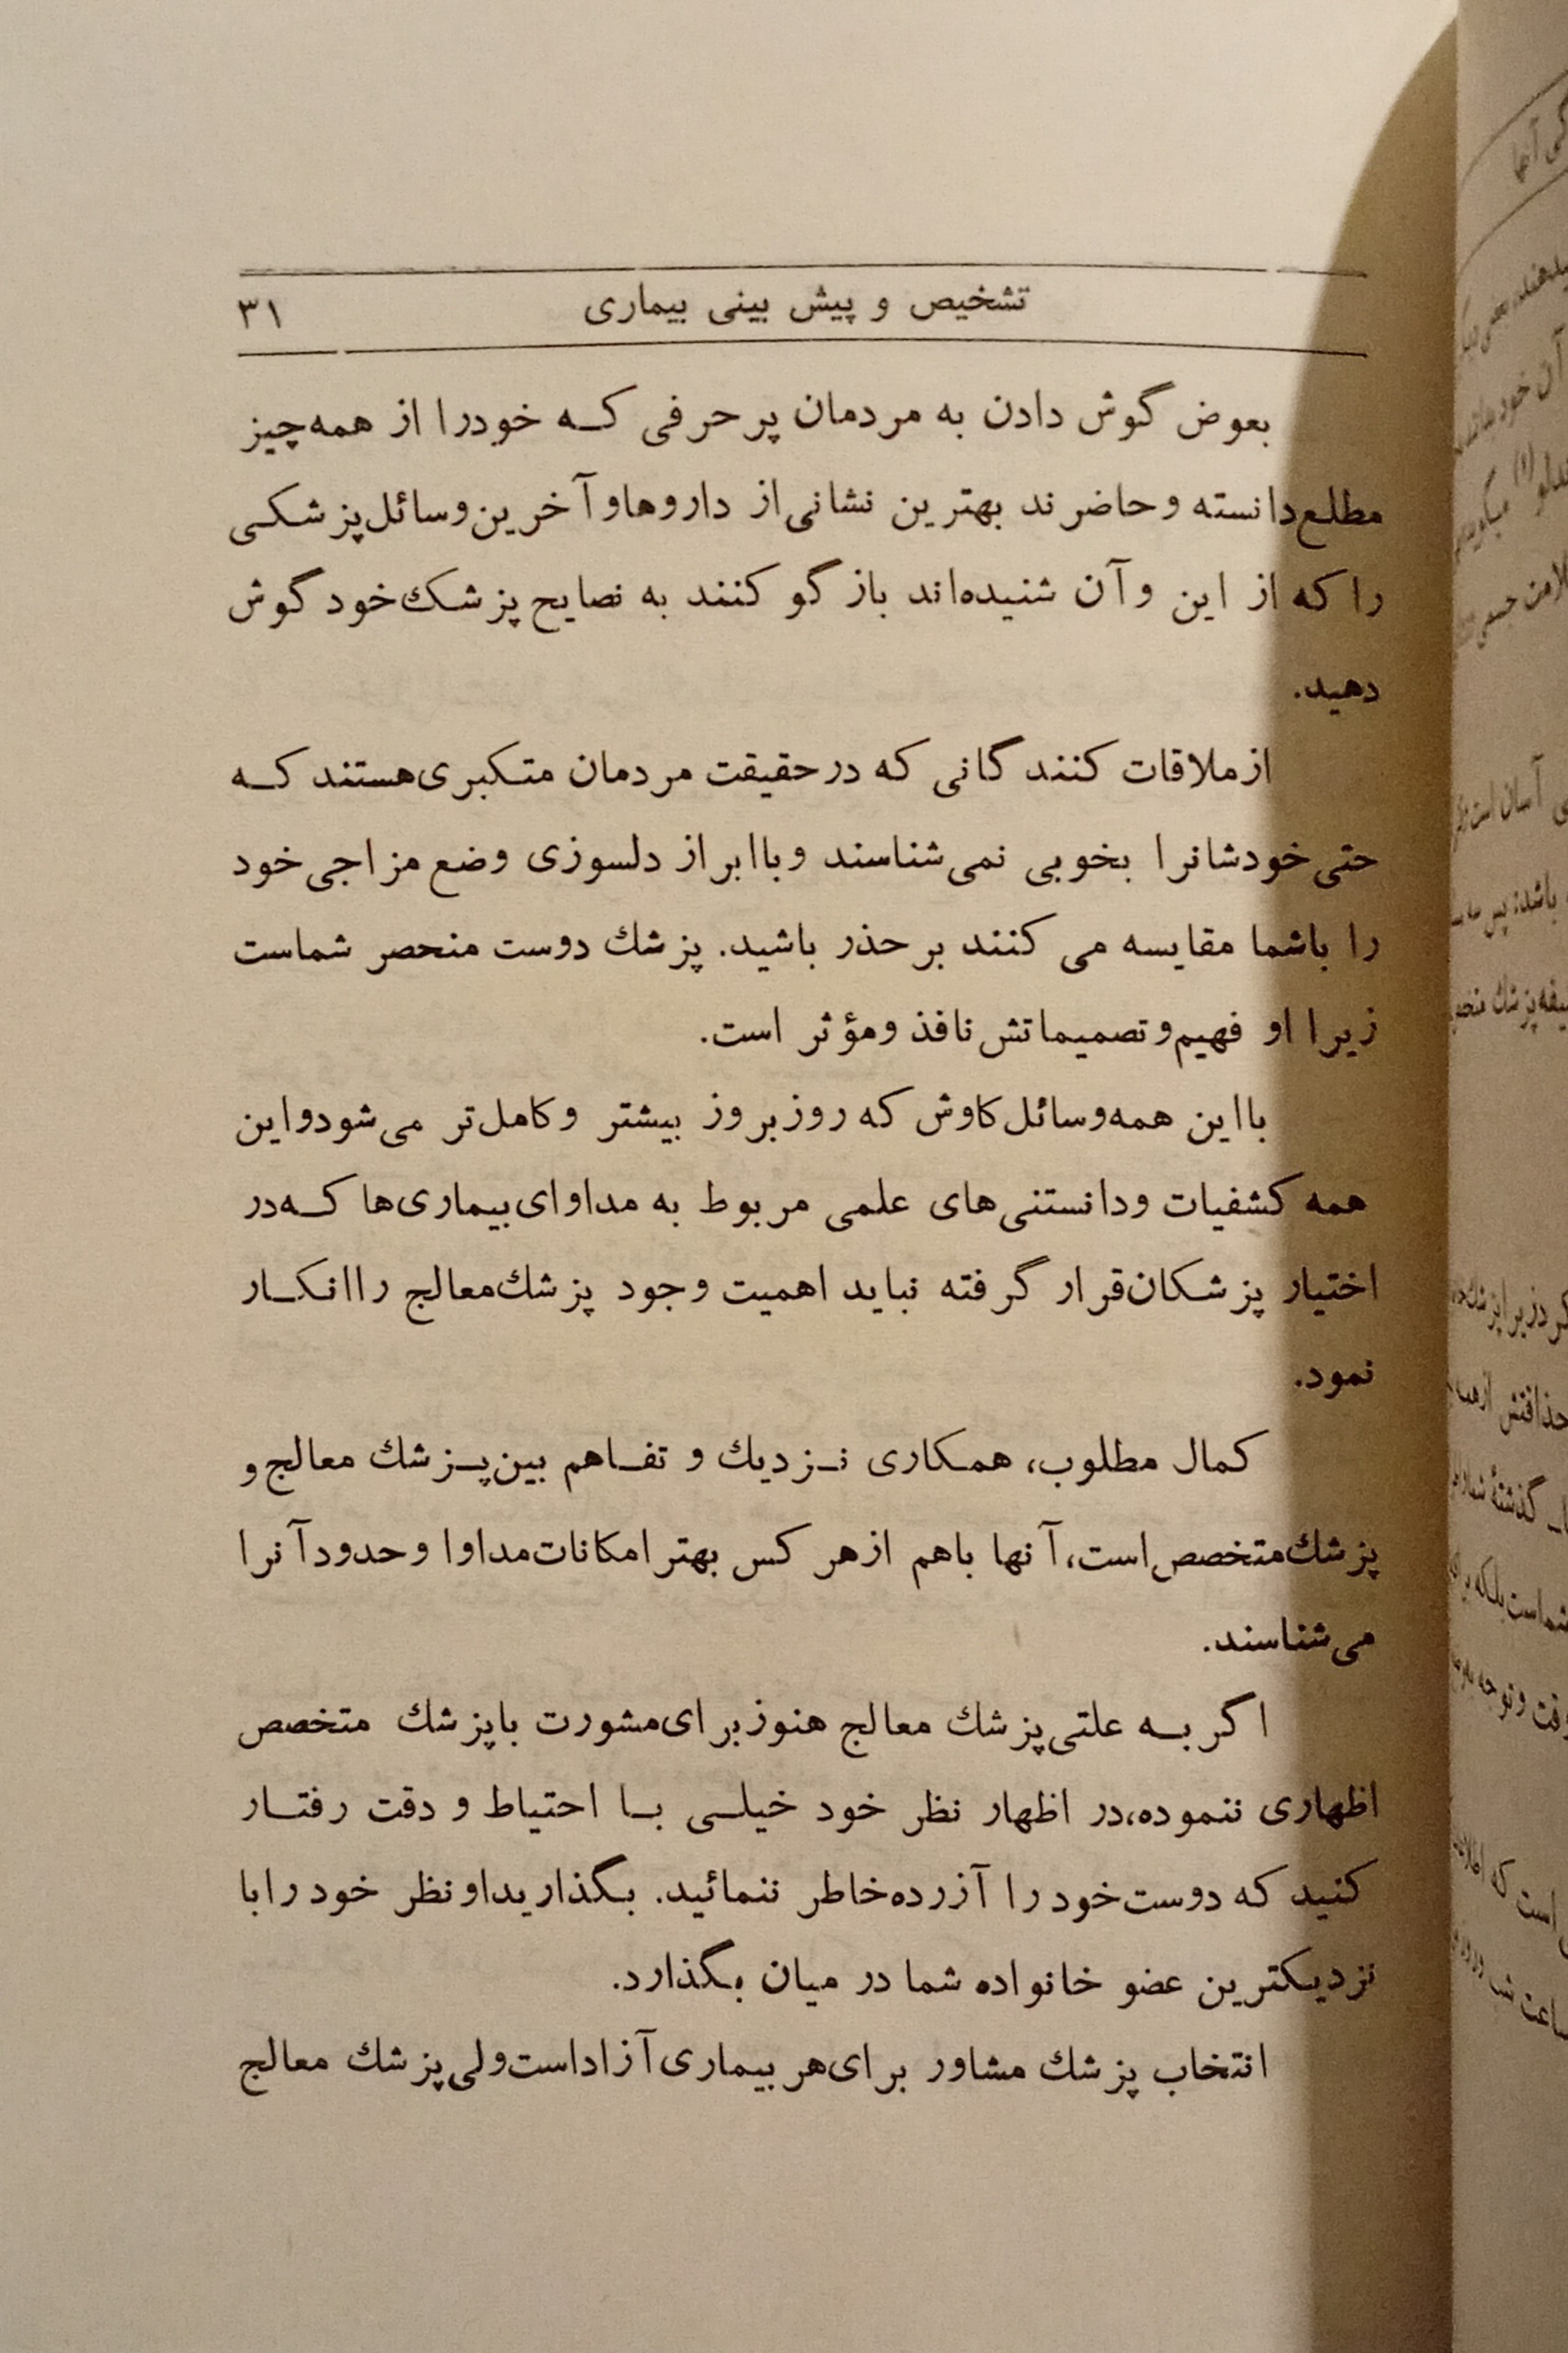 تشخیص و پیش بینی بیماری ۳۱
بعوض گوش دادن به مردمان پرحرفی کـه خودرا از همه‌چیز
مطلع‌دانسته و حاضرند بهترین نشانی‌از داروهاوآخرین‌وسائل‌پزشکـی
را که از این وآن شنیده‌اند بازگو کنند به نصایح پزشك‌خود گوش
دهید.
از ملاقات کنندگانی که درحقیقت مردمان متکبری‌هستند کـه
حتی خودشانرا بخوبی نمی‌شناسند وباابراز دلسوزی وضع مزاجی خود
را باشما مقایسه می کنند برحذر باشید. پزشك دوست منحصر شماست
زیرا او فهیم‌و تصمیماتش نافذ ومؤثر است.
بااین همه‌وسائل‌کاوش که روزبروز بیشتر وکامل‌تر می‌شودواین
همه کشفیات ودانستنی‌های علمی مربوط به مداوای‌بیماری‌ها کـه‌در
اختیار پزشکان‌قرار گرفته نباید اهمیت وجود پزشك‌معالج راانکـار
نمود.
کمال مطلوب، همکاری نـزدیك و تفـاهم بین‌پـزشك معالج و
پزشك‌متخصص‌است،آنها باهم ازهر کس بهترامکانات‌مداوا وحدودآنرا
می‌شناسند.
اگر بـه علتی‌پزشك معالج هنوزبرای‌مشورت باپزشك متخصص
اظهاری ننموده،در اظهار نظر خود خیلـی بـا احتیاط و دقت رفتـار
کنید که دوست‌خود را آزرده‌خاطر ننمائید. بگذاریداونظر خود رابا
نزدیکترین عضو خانواده شما در میان بگذارد.
انتخاب پزشك مشاور برای‌هر بیماری‌آزاداست‌ولی‌پزشك معالج